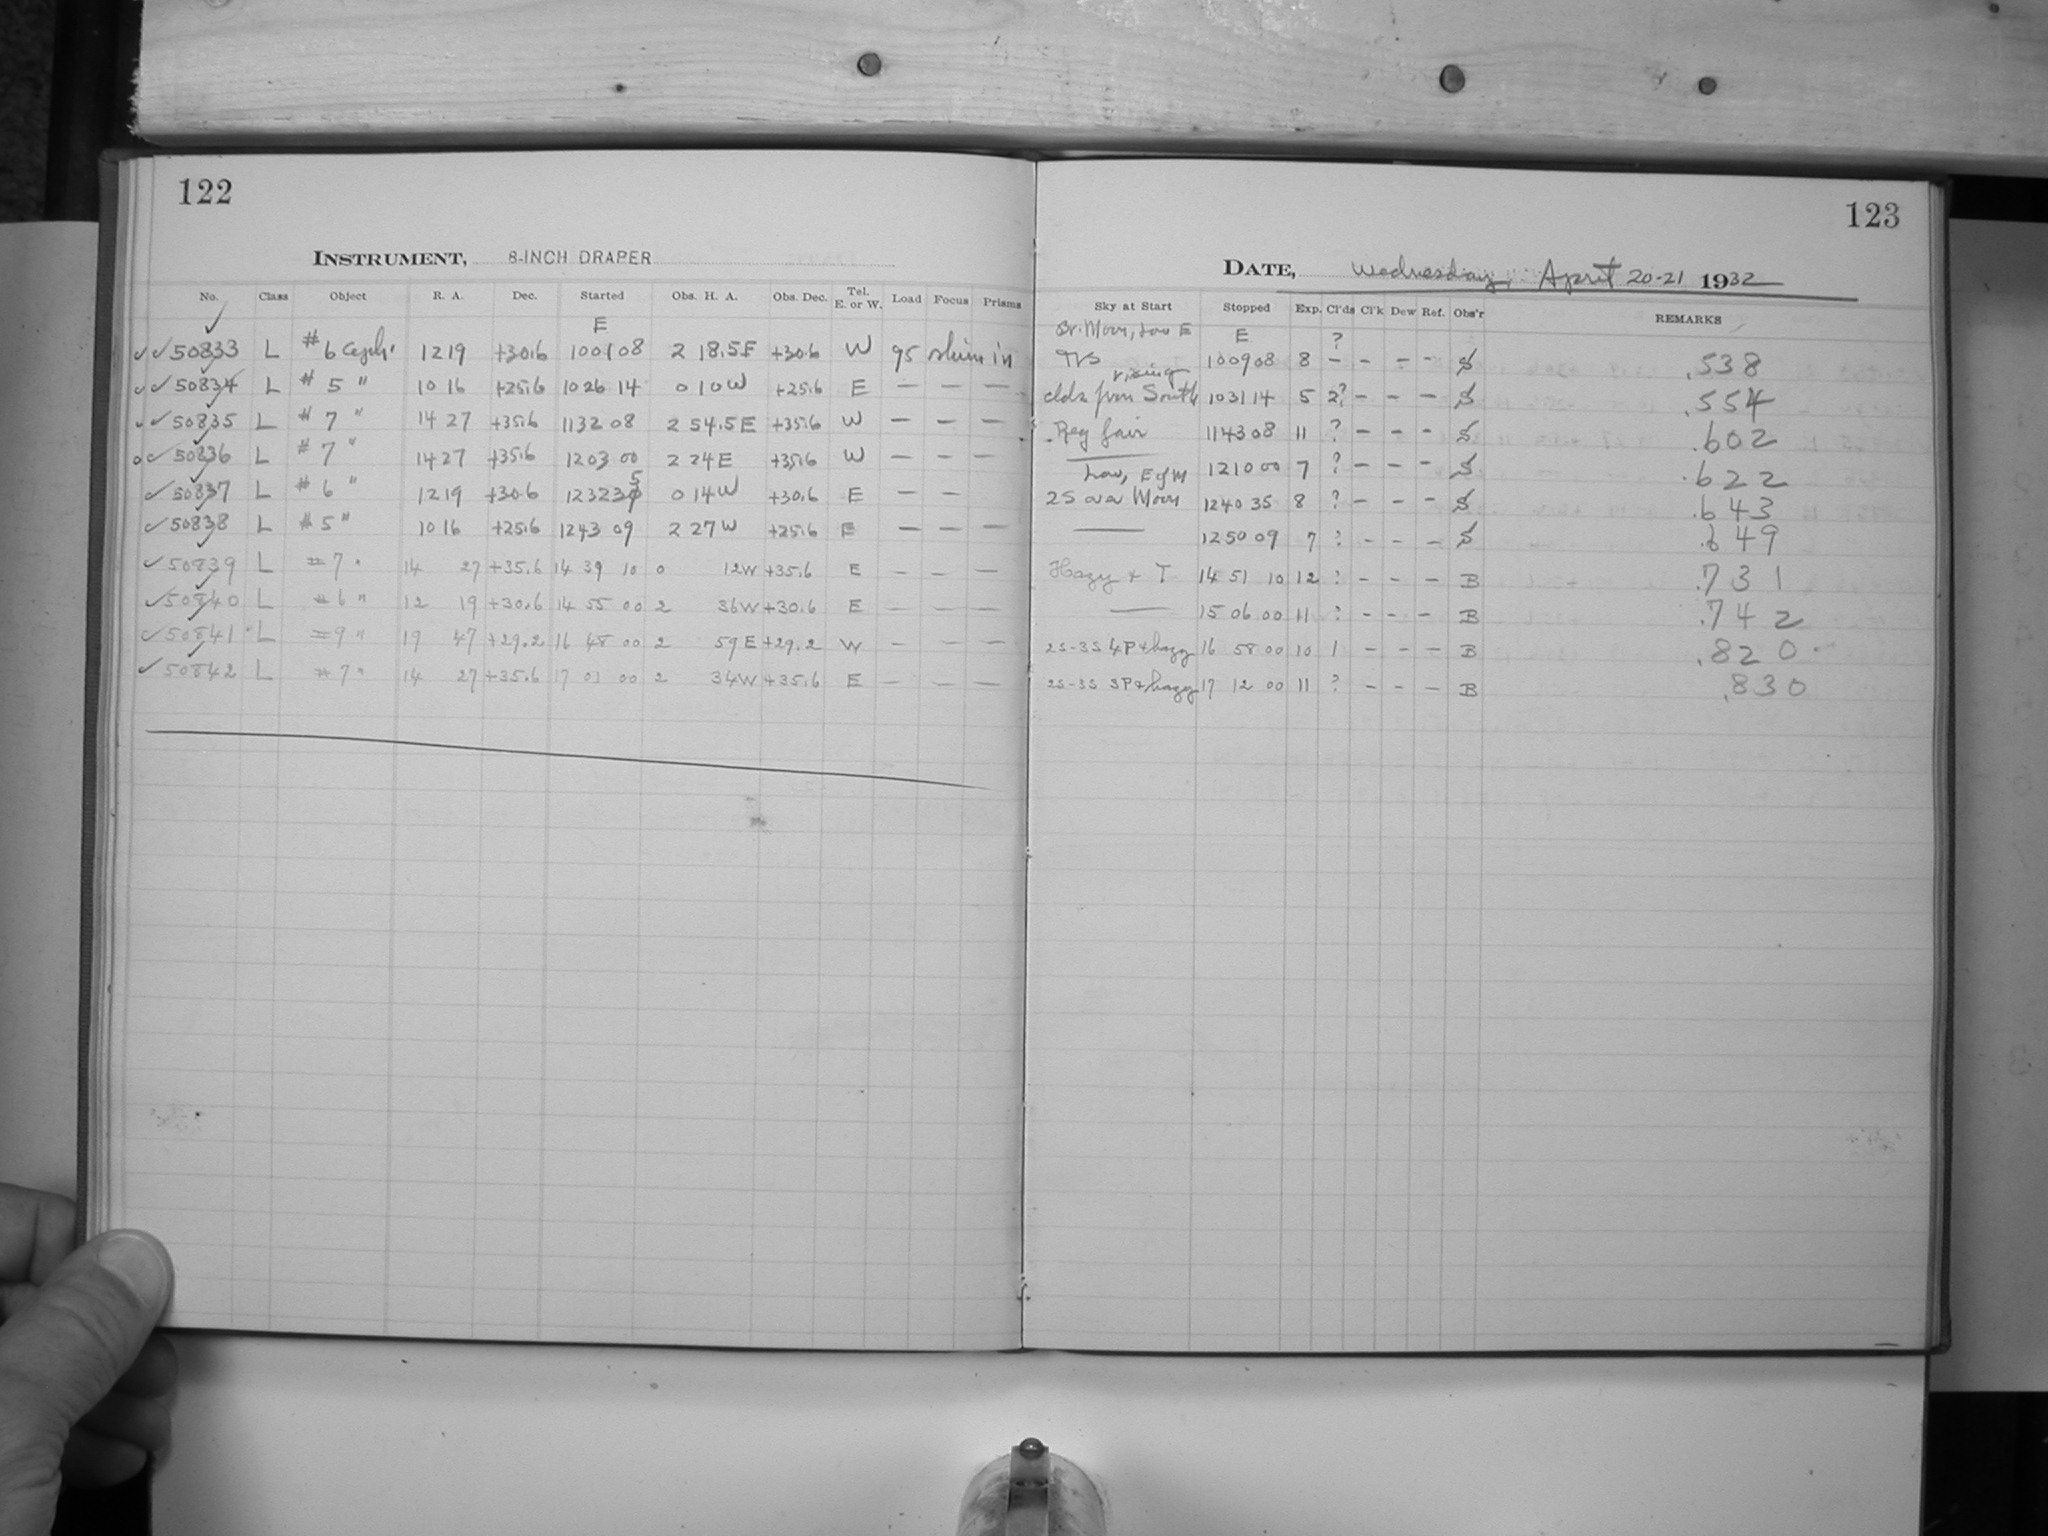 122
INSTRUMENT, 8-INCH DRAPER
No. Class Object R. A. Dec. Started Obs. H. A. Obs. Dec. Tel. E. or W. Load Focus Prisms
E
✓✓50833 L #6 Ceph. 12 19 +30.6 10 01 08 2 18.5E +30.6 W 95 shim in
✓✓50834 L #5 " 10 16 +25.6 10 26 14 0 10W +25.6 E — — —
✓✓50835 L #7 " 14 27 +35.6 11 32 08 2 54.5E +35.6 W — — —
✓50836 L #7 " 14 27 +35.6 12 03 00 2 24E +35.6 W — — —
✓50837 L #6 " 12 19 +30.6 12 32 35 0 14W +30.6 E — —
✓50838 L #5 " 10 16 +25.6 12 43 09 2 27W +25.6 E — — —
✓50839 L #7 " 14 27 +35.6 14 39 10 0 12W +35.6 E — — —
✓50840 L #6 " 12 19 +30.6 14 55 00 2 36W +30.6 E — — —
✓50841 L #9 " 19 47 +29.2 16 48 00 2 59E +29.2 W — — —
✓50842 L #7 " 14 27 +35.6 17 01 00 2 34W +35.6 E — — —
123
DATE, Wednesday, April 20-21 1932
Sky at Start Stopped Exp. Cl'ds Cl'k Dew Ref. Obs'r REMARKS
Br. Moon, Low E E ?
10 09 08 8 – – – – S .538
rising
clds from South 10 31 14 5 2? – – – S .554
Reg fair 11 43 08 11 ? – – – S .602
— 12 10 00 7 ? – – – S .622
Low, E of M
2S over Moon 12 40 35 8 ? – – – S .643
— 12 50 09 7 ? – – – S .649
Hazy + T 14 51 10 12 ? – – – B .731
— 15 06 00 11 ? – – – B .742
2S-3S 4P+hazy 16 58 00 10 1 – – – B .820
2S-3S 3P+hazy 17 12 00 11 ? – – – B .830